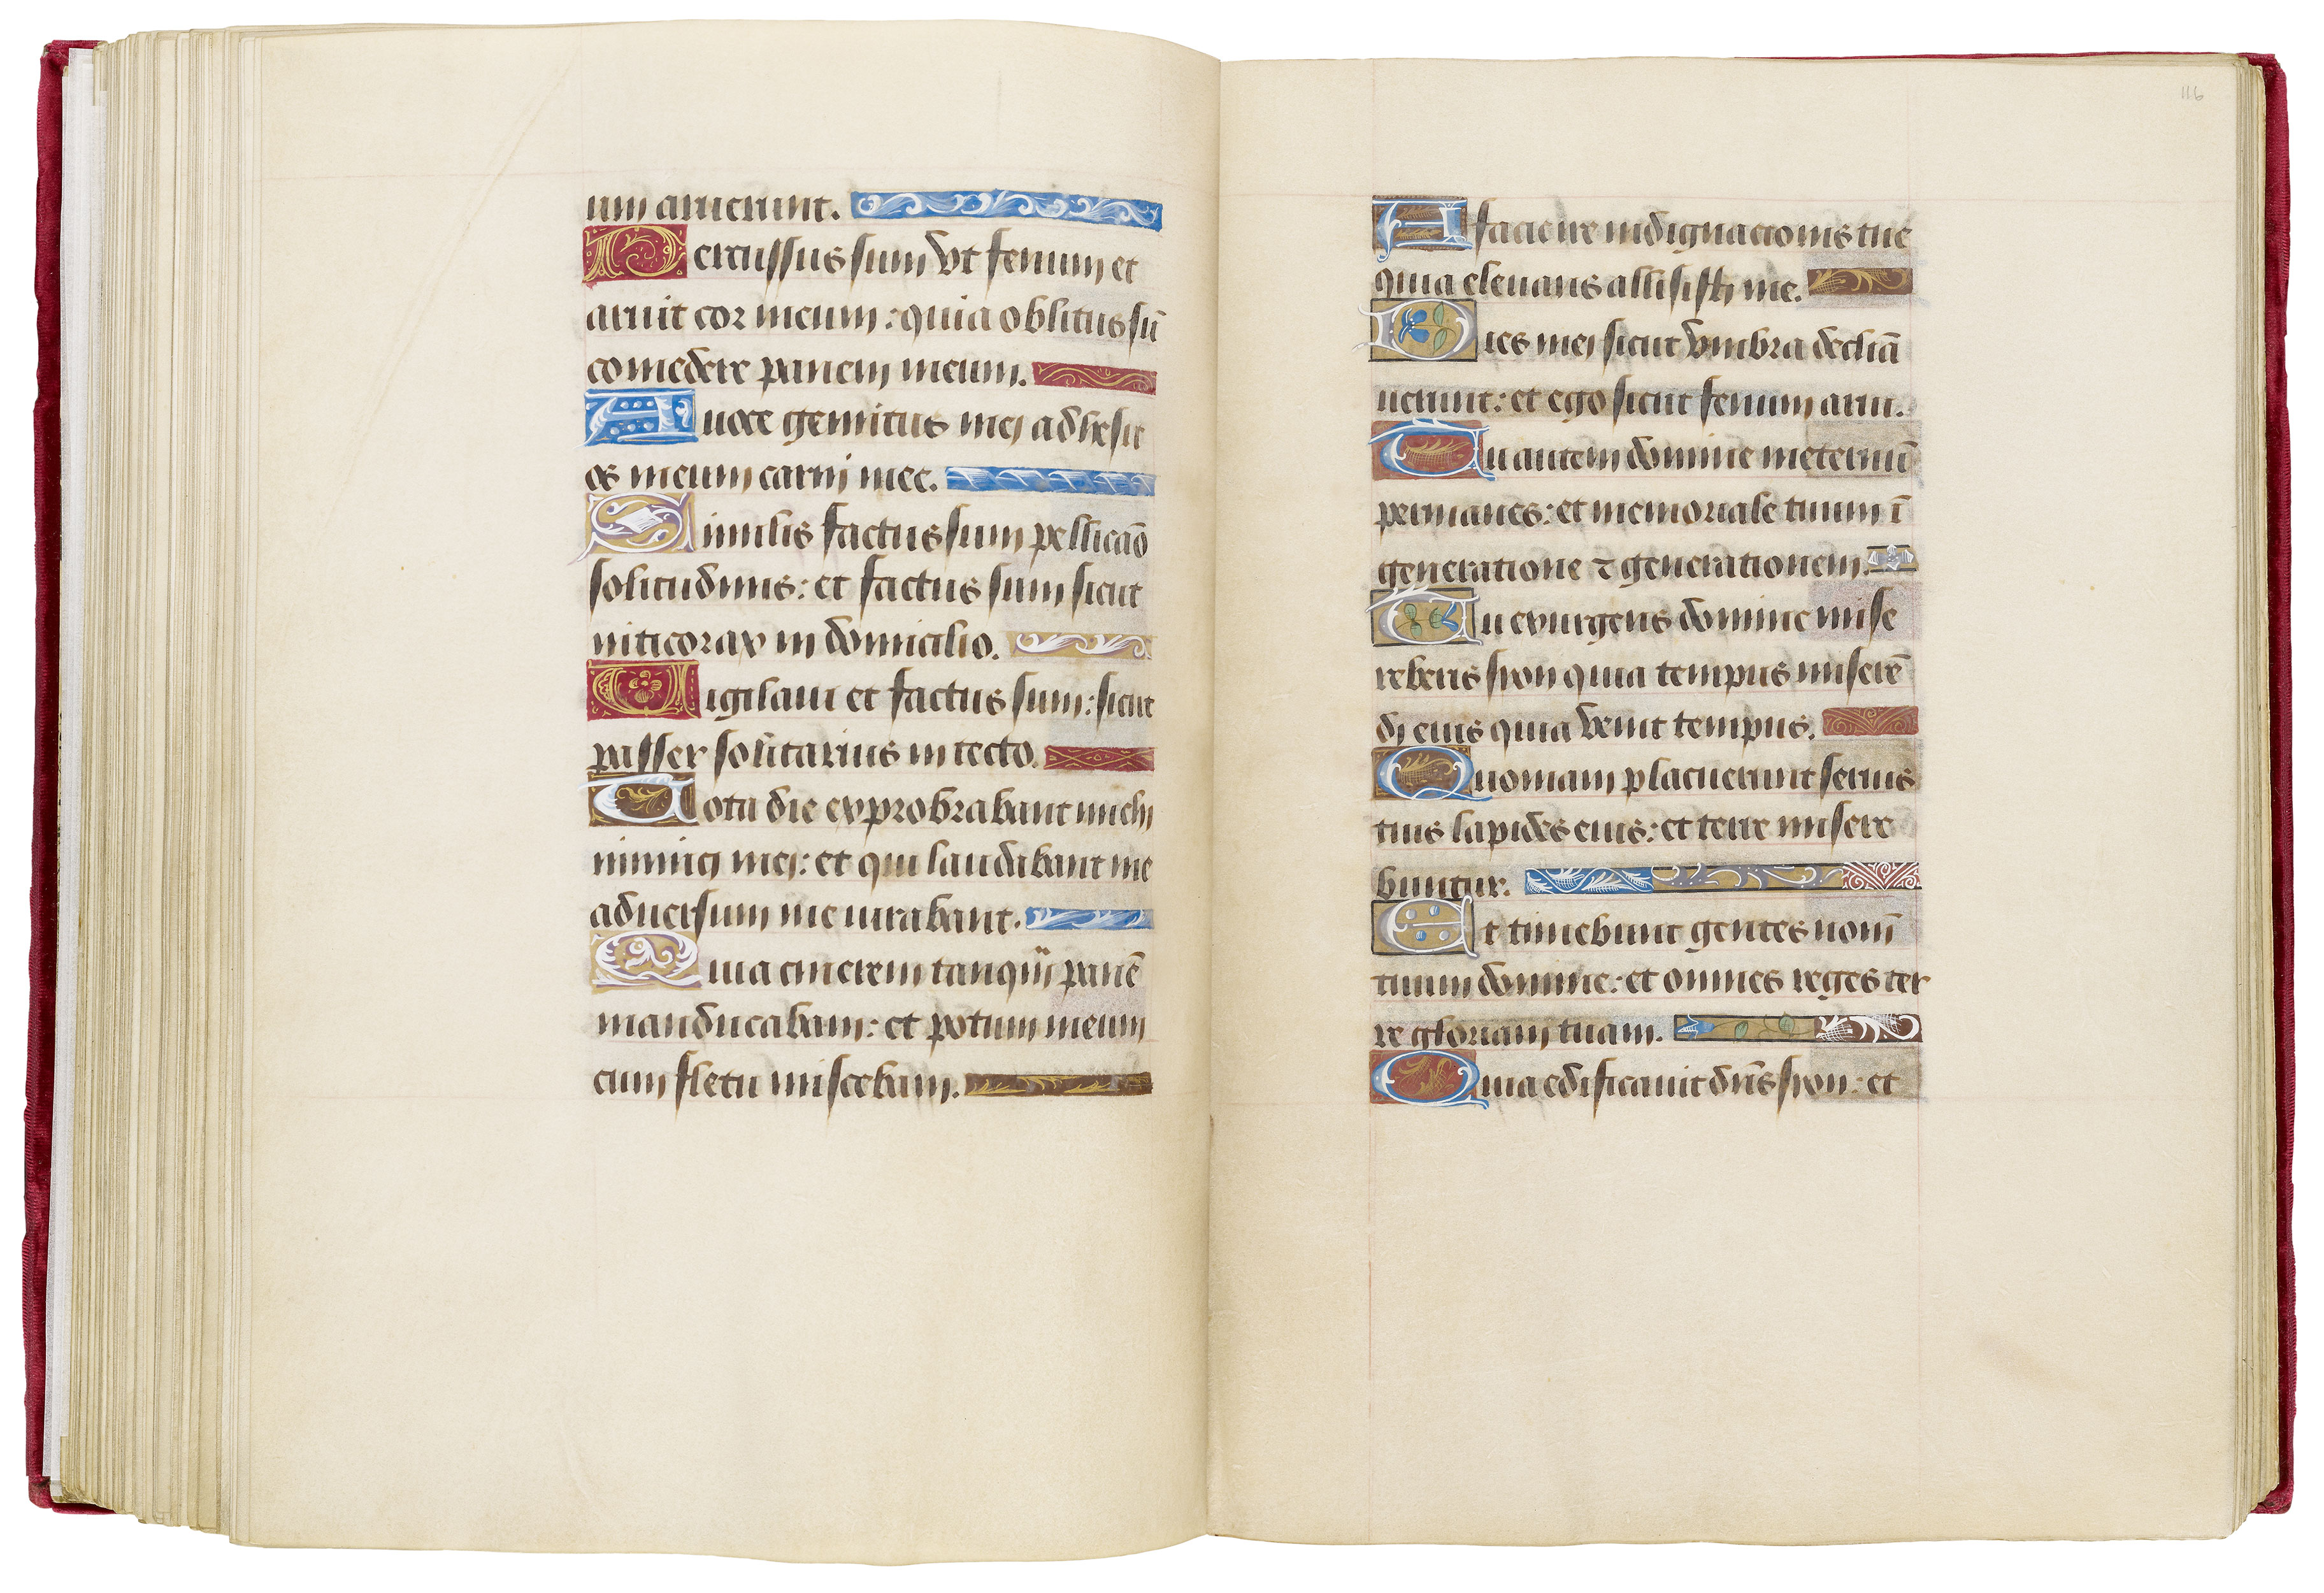 um aruerunt.
Percussus sum vt fenum et
aruit cor meum: quia oblitus sū
comedere panem meum.
A uoce gemitus mei adhesit
os meum carni mee.
Similis factus sum pellicāo
solitudinis: et factus sum sicut
niticorax in domicilio.
Uigilaui et factus sum: sicut
passer solitarius in tecto.
Tota die exprobrabant michi
inimici mei: et qui laudabant me
aduersum me iurabant.
Quia cinerem tanqm̄ panē
manducabam: et potum meum
cum fletu miscebam.
116
A facie ire indignacionis tue
quia eleuans allisisti me.
Dies mei sicut vmbra decliā
uerunt: et ego sicut fenum arui.
Tu autem domine in eternū
permanes: et memoriale tuum ī
generatione ⁊ generationem.
Tu exurgens domine mise
reberis sion quia tempus miserē
di eius quia venit tempus.
Quoniam placuerunt seruis
tuis lapides eius: et terre misere
buntur.
Et timebunt gentes nom̄
tuum domine: et omnes reges ter
re gloriam tuam.
Quia edificauit dn̄s sion: et